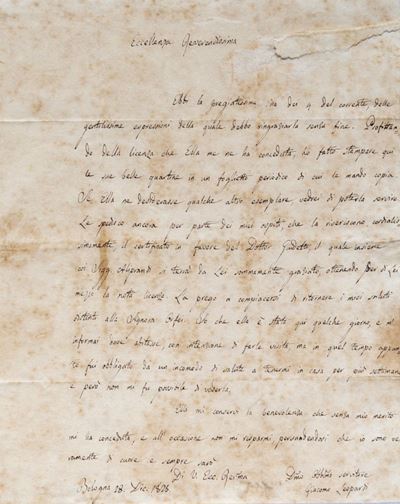 Eccellenza Reverendissima
Ebbi la pregiatissima sua dei 4 del corrente, delle
gentilissime espressioni della quale debbo ringraziarla senza fine. Profittan
do della licenza che Ella me ne ha conceduta, ho fatto stampare qui
le sue belle quartine in un foglietto periodico di cui le mando copia.
Se Ella ne desiderasse qualche altro esemplare vedrei di poterla servire.
Le spedisco ancora per parte dei miei ospiti che la riveriscono cordialis
simamente, il certificato in favore del Dottor il quale insieme
coi Sigg. si terrà da Lei sommamente graziato, ottenendo per di Lei
mezzo la nota licenza. La prego a compiacersi di ritornare i miei saluti
distinti alla Signora Orfei. So che ella è stata qui qualche giorno, e m'
informai dove abitasse, con intenzione di farle visita, ma in quel tempo appun
to fui obbligato da un incomodo di salute a tenermi in casa per più settimane
e però non mi fu possibile di vederla.
Ella mi conservi la benevolenza che senza mio merito
mi ha conceduta, e all'occasione non mi risparmi, persuadendosi che io sono ve
ramente di cuore e sempre sarò
Di V. Ecc. Rev.ma
Dmo Obblmo servitore
Bologna Dic.
Giacomo Leopardi